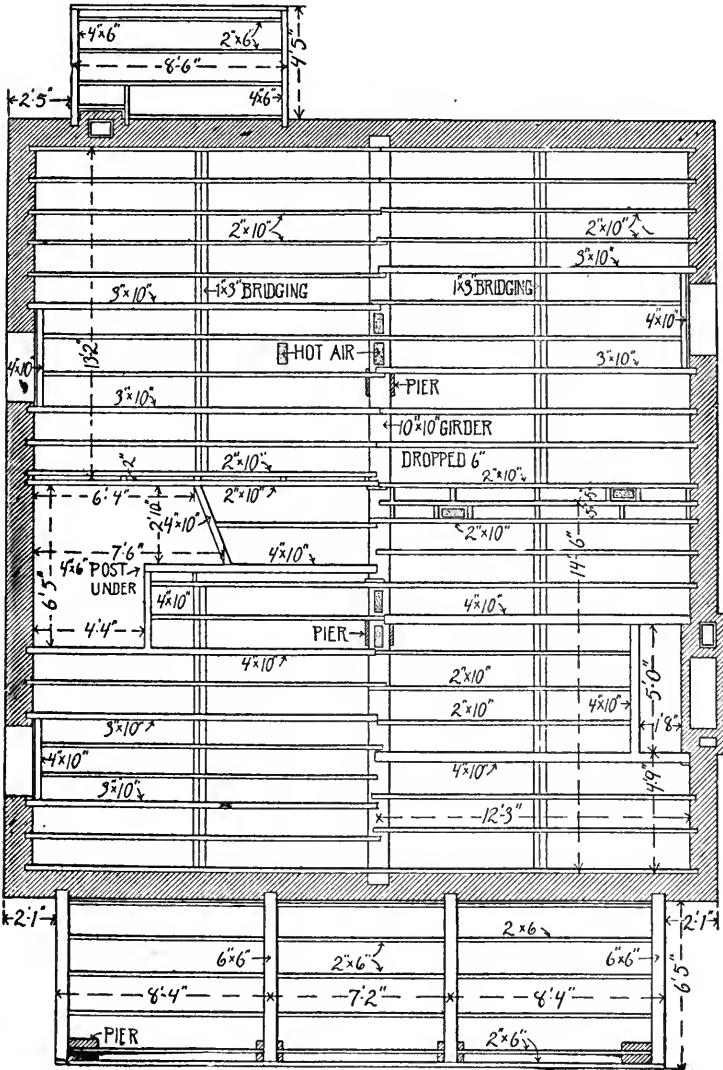 4"x6"
2"x6"
8'-6"
4'5"
2'-5"
4x6"
2"x10"
2"x10"
3"x10"
3"x10"
1"x3" BRIDGING
1x3" BRIDGING
4x10"
4x10"
13'2"
HOT AIR
3"x10"
3"x10"
PIER
10"x10" GIRDER
DROPPED 6"
2"x10"
2"
2"x10"
6'-4"
2"x10"
2'10"
4"x10"
2"x10"
7'-6"
4"x10"
14'-6"
4"x6" POST
UNDER
6'5"
4"x10"
4"x10"
4'-4"
PIER
4"x10"
2"x10"
5'-0"
2"x10"
4"x10"
1'8"
3"x10"
4"x10"
4"x10"
4'9"
3"x10"
12'-3"
2'-1"
2'-1"
2x6
6"x6"
2"x6"
6"x6"
6'5"
8'-4"
7'-2"
8'-4"
PIER
2"x6"